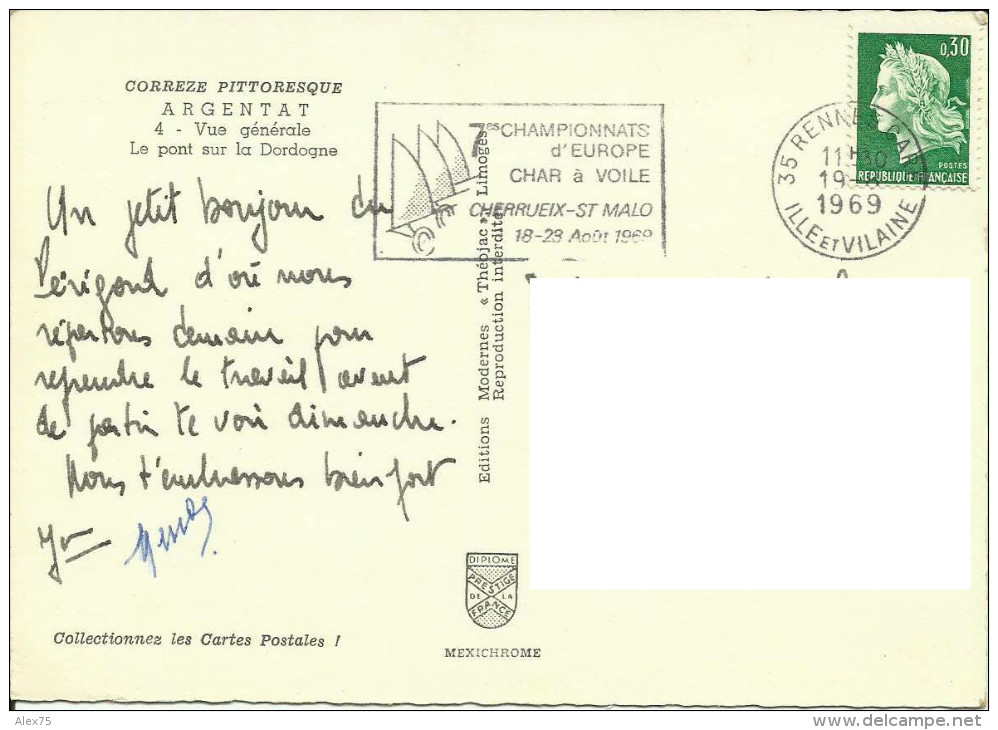 CORREZE PITTORESQUE
ARGENTAT
4 - Vue générale
Le pont sur la Dordogne
Un petit bonjour du
Périgord d'où nous
répartons demain pour
reprendre le travail avant
de partir te voir dimanche.
Nous t'embrassons bien fort
Yv
7es CHAMPIONNATS
d'EUROPE
CHAR à VOILE
CHERRUEIX-ST MALO
18-23 Août 1969
Editions Modernes « Théojac », Limoges
Reproduction interdite
0,30
POSTES
REPUBLIQUE FRANÇAISE
35 RENNES GARE
1969
ILLE ET VILAINE
DIPLOME
PRESTIGE
DE LA
FRANCE
MEXICHROME
Collectionnez les Cartes Postales !
Alex75
delcampe.net